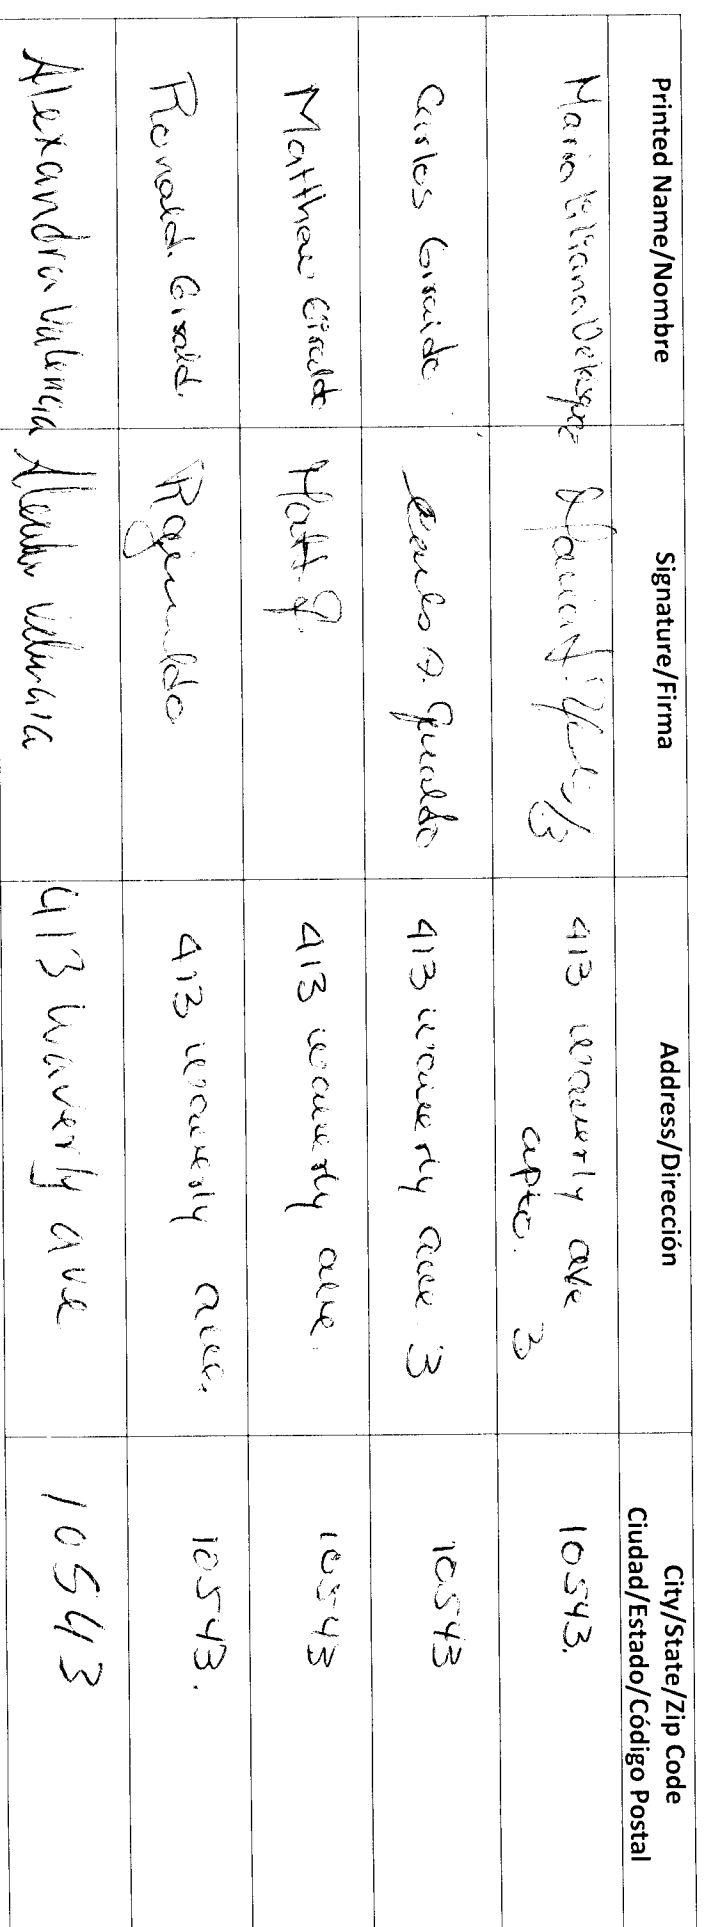 Printed Name/Nombre Signature/Firma Address/Dirección City/State/Zip Code
Ciudad/Estado/Código Postal
Maria Liliana Velasquez 413 waverly ave 10543.
apto. 3
Carlos Giraldo Carlos A. Giraldo 413 waverly ave 3 10543
Matthew Giraldo Matt g. 413 waverly ave. 10543
Ronald. Girald. 413 waverly ave. 10543.
Alexandra Valencia Valencia 413 waverly ave 10543